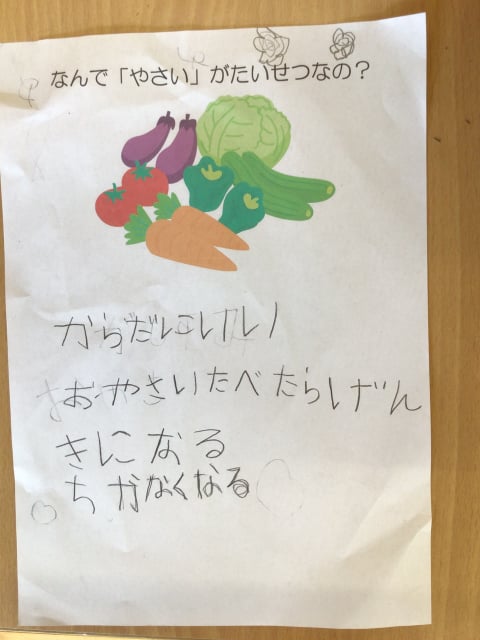 なんで「やさい」がたいせつなの？
からだにけい
おやさいたべたらげん
きになる
ちがなくなる